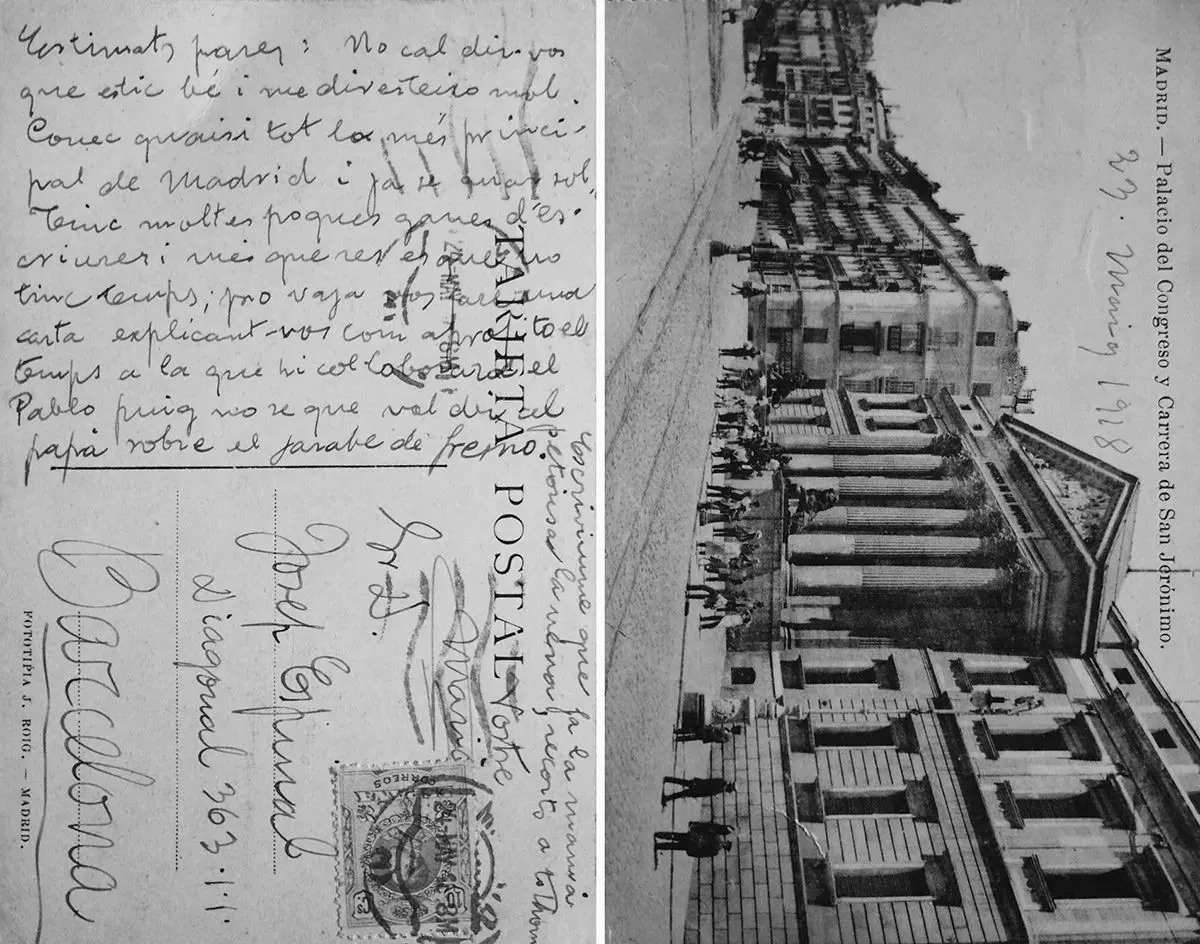 Estimats pares: No cal dir-vos
que estic bé i me diverteixo mol.
Conec quaisi tot lo més princi-
pal de Madrid i ja se anar sol.
Tinc moltes poques ganes d'es-
criurer i més que res es que no
tinc temps; pro vaja vos faré una
carta explicant-vos com aprofito el
temps a la que hi col·laborará el
Pablo puig no se que vol dir el
papá sobre el jarabe de fresno.
Escriviume que fa la mamá
petonisa la nena, records a tothom
Vostre
Mariá
TARJETA POSTAL
Sr D.
Josep Espinal
Diagonal 363-1-1
Barcelona
FOTOTIPIA J. ROIG. — MADRID.
CORREOS
MADRID. — Palacio del Congreso y Carrera de San Jerónimo.
23. Maig 1918